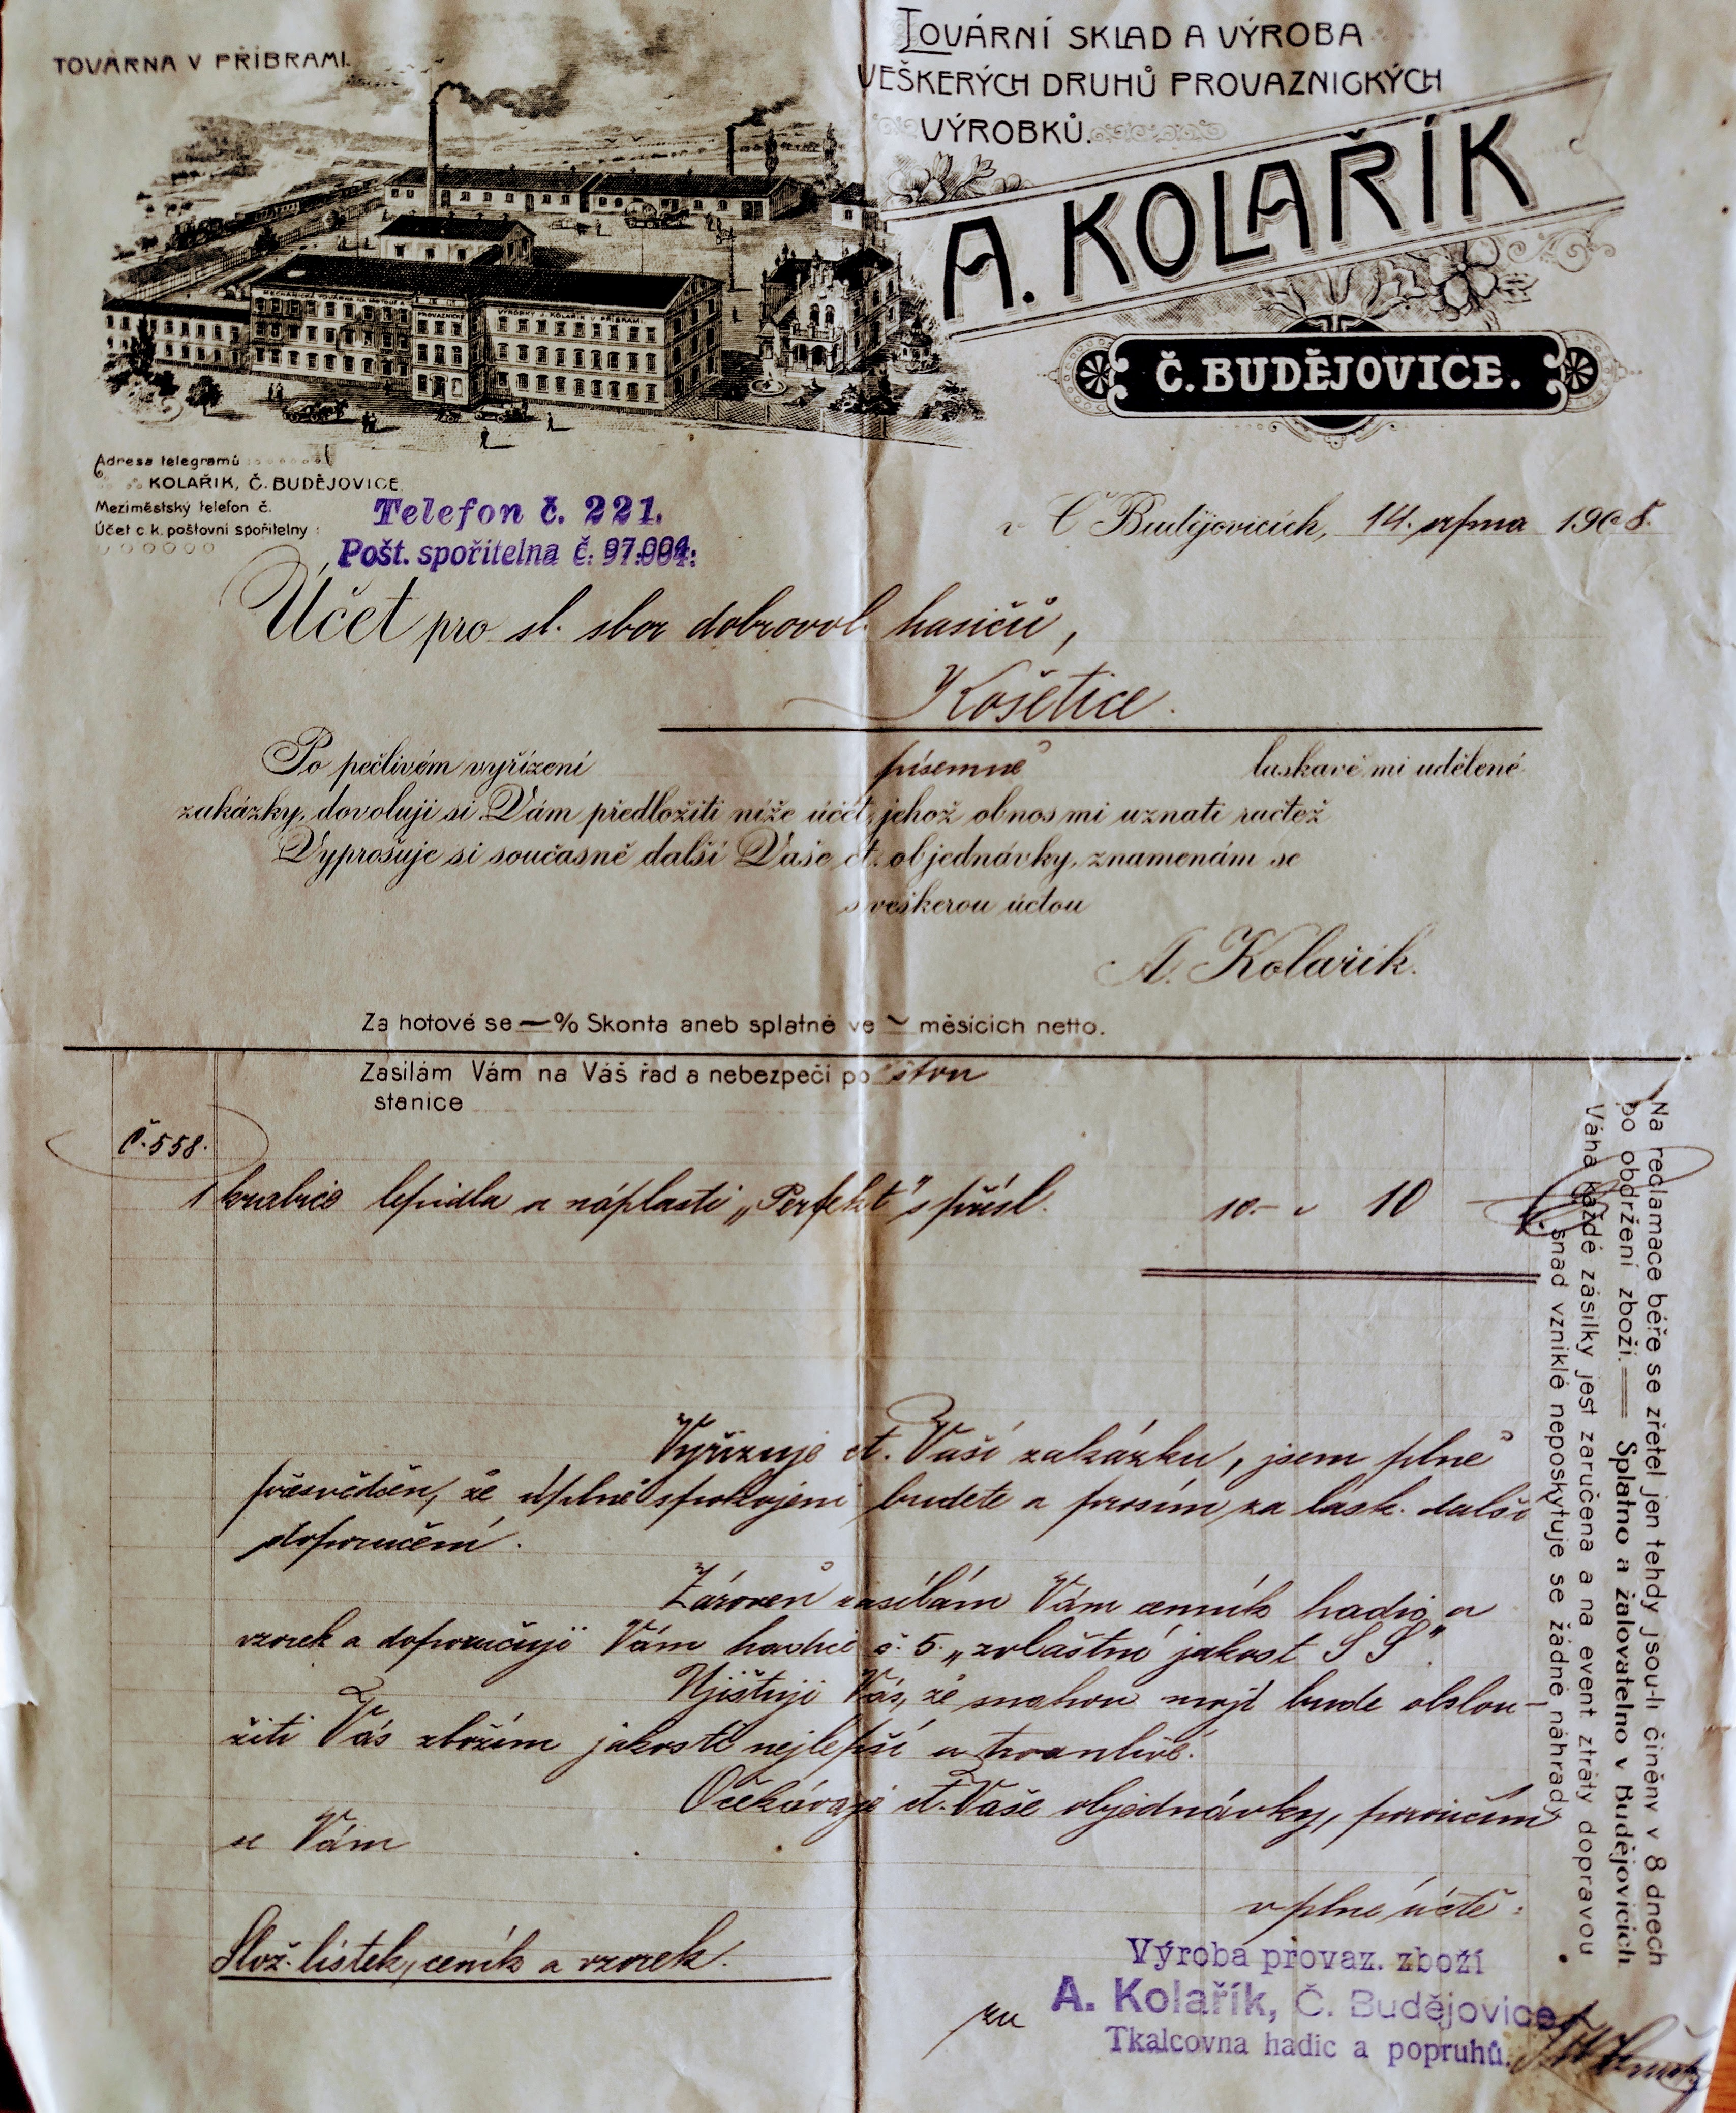 TOVÁRNA V PŘÍBRAMI.
TOVÁRNÍ SKLAD A VÝROBA
VEŠKERÝCH DRUHŮ PROVAZNICKÝCH
VÝROBKŮ.
A. KOLAŘÍK
Č. BUDĚJOVICE.
MECHANICKÁ TOVÁRNA NA MOTOUZ A PROVAZNICKÉ VÝROBKY J. KOLAŘÍK V PŘÍBRAMI.
Adresa telegramů
KOLAŘIK, Č. BUDĚJOVICE
Meziměstský telefon č.
Účet c. k. poštovní spořitelny :
Telefon č. 221.
Pošt. spořitelna č. 97.004.
v Č Budějovicích, 14. srpna 1908.
Účet pro sl. sbor dobrovol. hasičů,
Košetice.
Po pečlivém vyřízení písemně laskavě mi udělené
zakázky, dovoluji si Vám předložiti níže účet, jehož obnos mi uznati račtež
Vyprošuje si současně další Vaše ct. objednávky, znamenám se
s veškerou úctou
A. Kolařík.
Za hotové se — % Skonta aneb splatné ve ~ měsících netto.
Zasílám Vám na Váš řad a nebezpečí poštou
stanice
Č. 558.
1 krabice lepidla a náplasti „Perfekt" s přísl. 10.- 10 —
Vyřizuje ct. Vaší zakázku, jsem plně
přesvědčen, že úplně spokojeni budete a prosím za lask. další
doporučení.
Zároveň zasílám Vám cenník hadic a
vzorek a doporučuji Vám hadici č. 5. „zvláštní jakost S S".
Ujištuji Vás, že snahou mojí bude obslou-
žiti Vás zbožím jakosti nejlepší a trvanlivé.
Očekávaje ct. Vaše objednávky, poroučím
se Vám
v plné úctě:
Slož. lístek, ceník a vzorek.
za
Výroba provaz. zboží
A. Kolařík, Č. Budějovice
Tkalcovna hadic a popruhů.
Na reclamace béře se zřetel jen tehdy jsou-li činěny v 8 dnech
po obdržení zboží. — Splatno a žalovatelno v Budějovicích
Váha každé zásilky jest zaručena a na event ztráty dopravou
snad vzniklé neposkytuje se žádné náhrady.